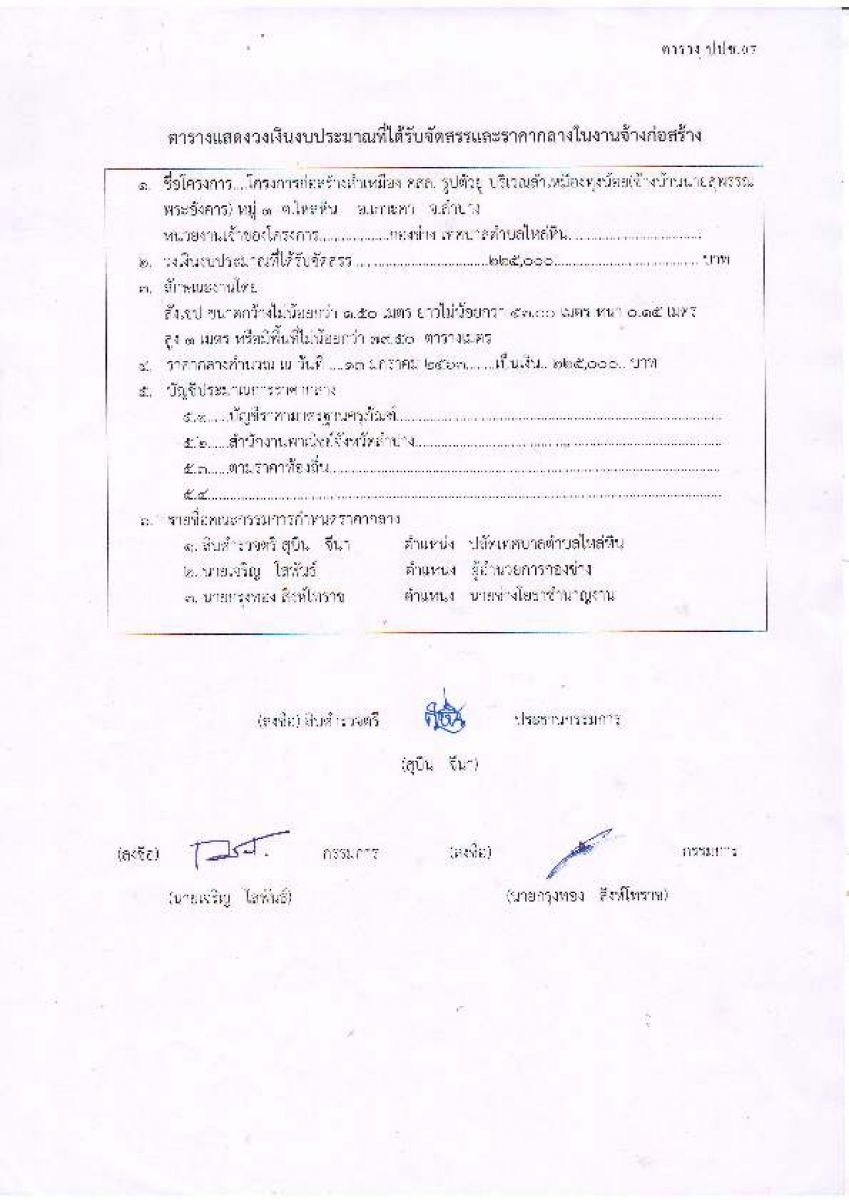 ตาราง ปปช.๐๗
ตารางแสดงวงเงินงบประมาณที่ได้รับจัดสรรและราคากลางในงานจ้างก่อสร้าง
๑. ชื่อโครงการ....โครงการก่อสร้างลำเหมือง คสล. รูปตัวยู บริเวณลำเหมืองทุ่งน้อย(ข้างบ้านนายสุพรรณ
พระอังคาร) หมู่ ๑ ต.ไหล่หิน อ.เกาะคา จ.ลำปาง
หน่วยงานเจ้าของโครงการ................กองช่าง เทศบาลตำบลไหล่หิน................
๒. วงเงินงบประมาณที่ได้รับจัดสรร................๒๒๕,๐๐๐................บาท
๓. ลักษณะงานโดย
สังเขป ขนาดกว้างไม่น้อยกว่า ๑.๕๐ เมตร ยาวไม่น้อยกว่า เมตร หนา ๐.๑๕ เมตร
สูง ๑ เมตร หรือมีพื้นที่ไม่น้อยกว่า ตารางเมตร
๔. ราคากลางคำนวณ ณ วันที่ ....๑๓ มกราคม ๒๕๖๓.......เป็นเงิน.. ๒๒๕,๐๐๐.. บาท
๕. บัญชีประมาณการราคากลาง
๕.๑......บัญชีราคามาตรฐานครุภัณฑ์................
๕.๒......สำนักงานพาณิชย์จังหวัดลำปาง................
๕.๓......ตามราคาท้องถิ่น................
๕.๔................
๖. รายชื่อคณะกรรมการกำหนดราคากลาง
๑. สิบตำรวจตรี สุบิน จีนา ตำแหน่ง ปลัดเทศบาลตำบลไหล่หิน
๒. นายเจริญ โสพันธ์ ตำแหน่ง ผู้อำนวยการกองช่าง
๓. นายกรุงทอง สิงห์โทราช ตำแหน่ง นายช่างโยธาชำนาญงาน
(ลงชื่อ) สิบตำรวจตรี ประธานกรรมการ
(สุบิน จีนา)
(ลงชื่อ) กรรมการ (ลงชื่อ) กรรมการ
(นายเจริญ โสพันธ์) (นายกรุงทอง สิงห์โทราช)